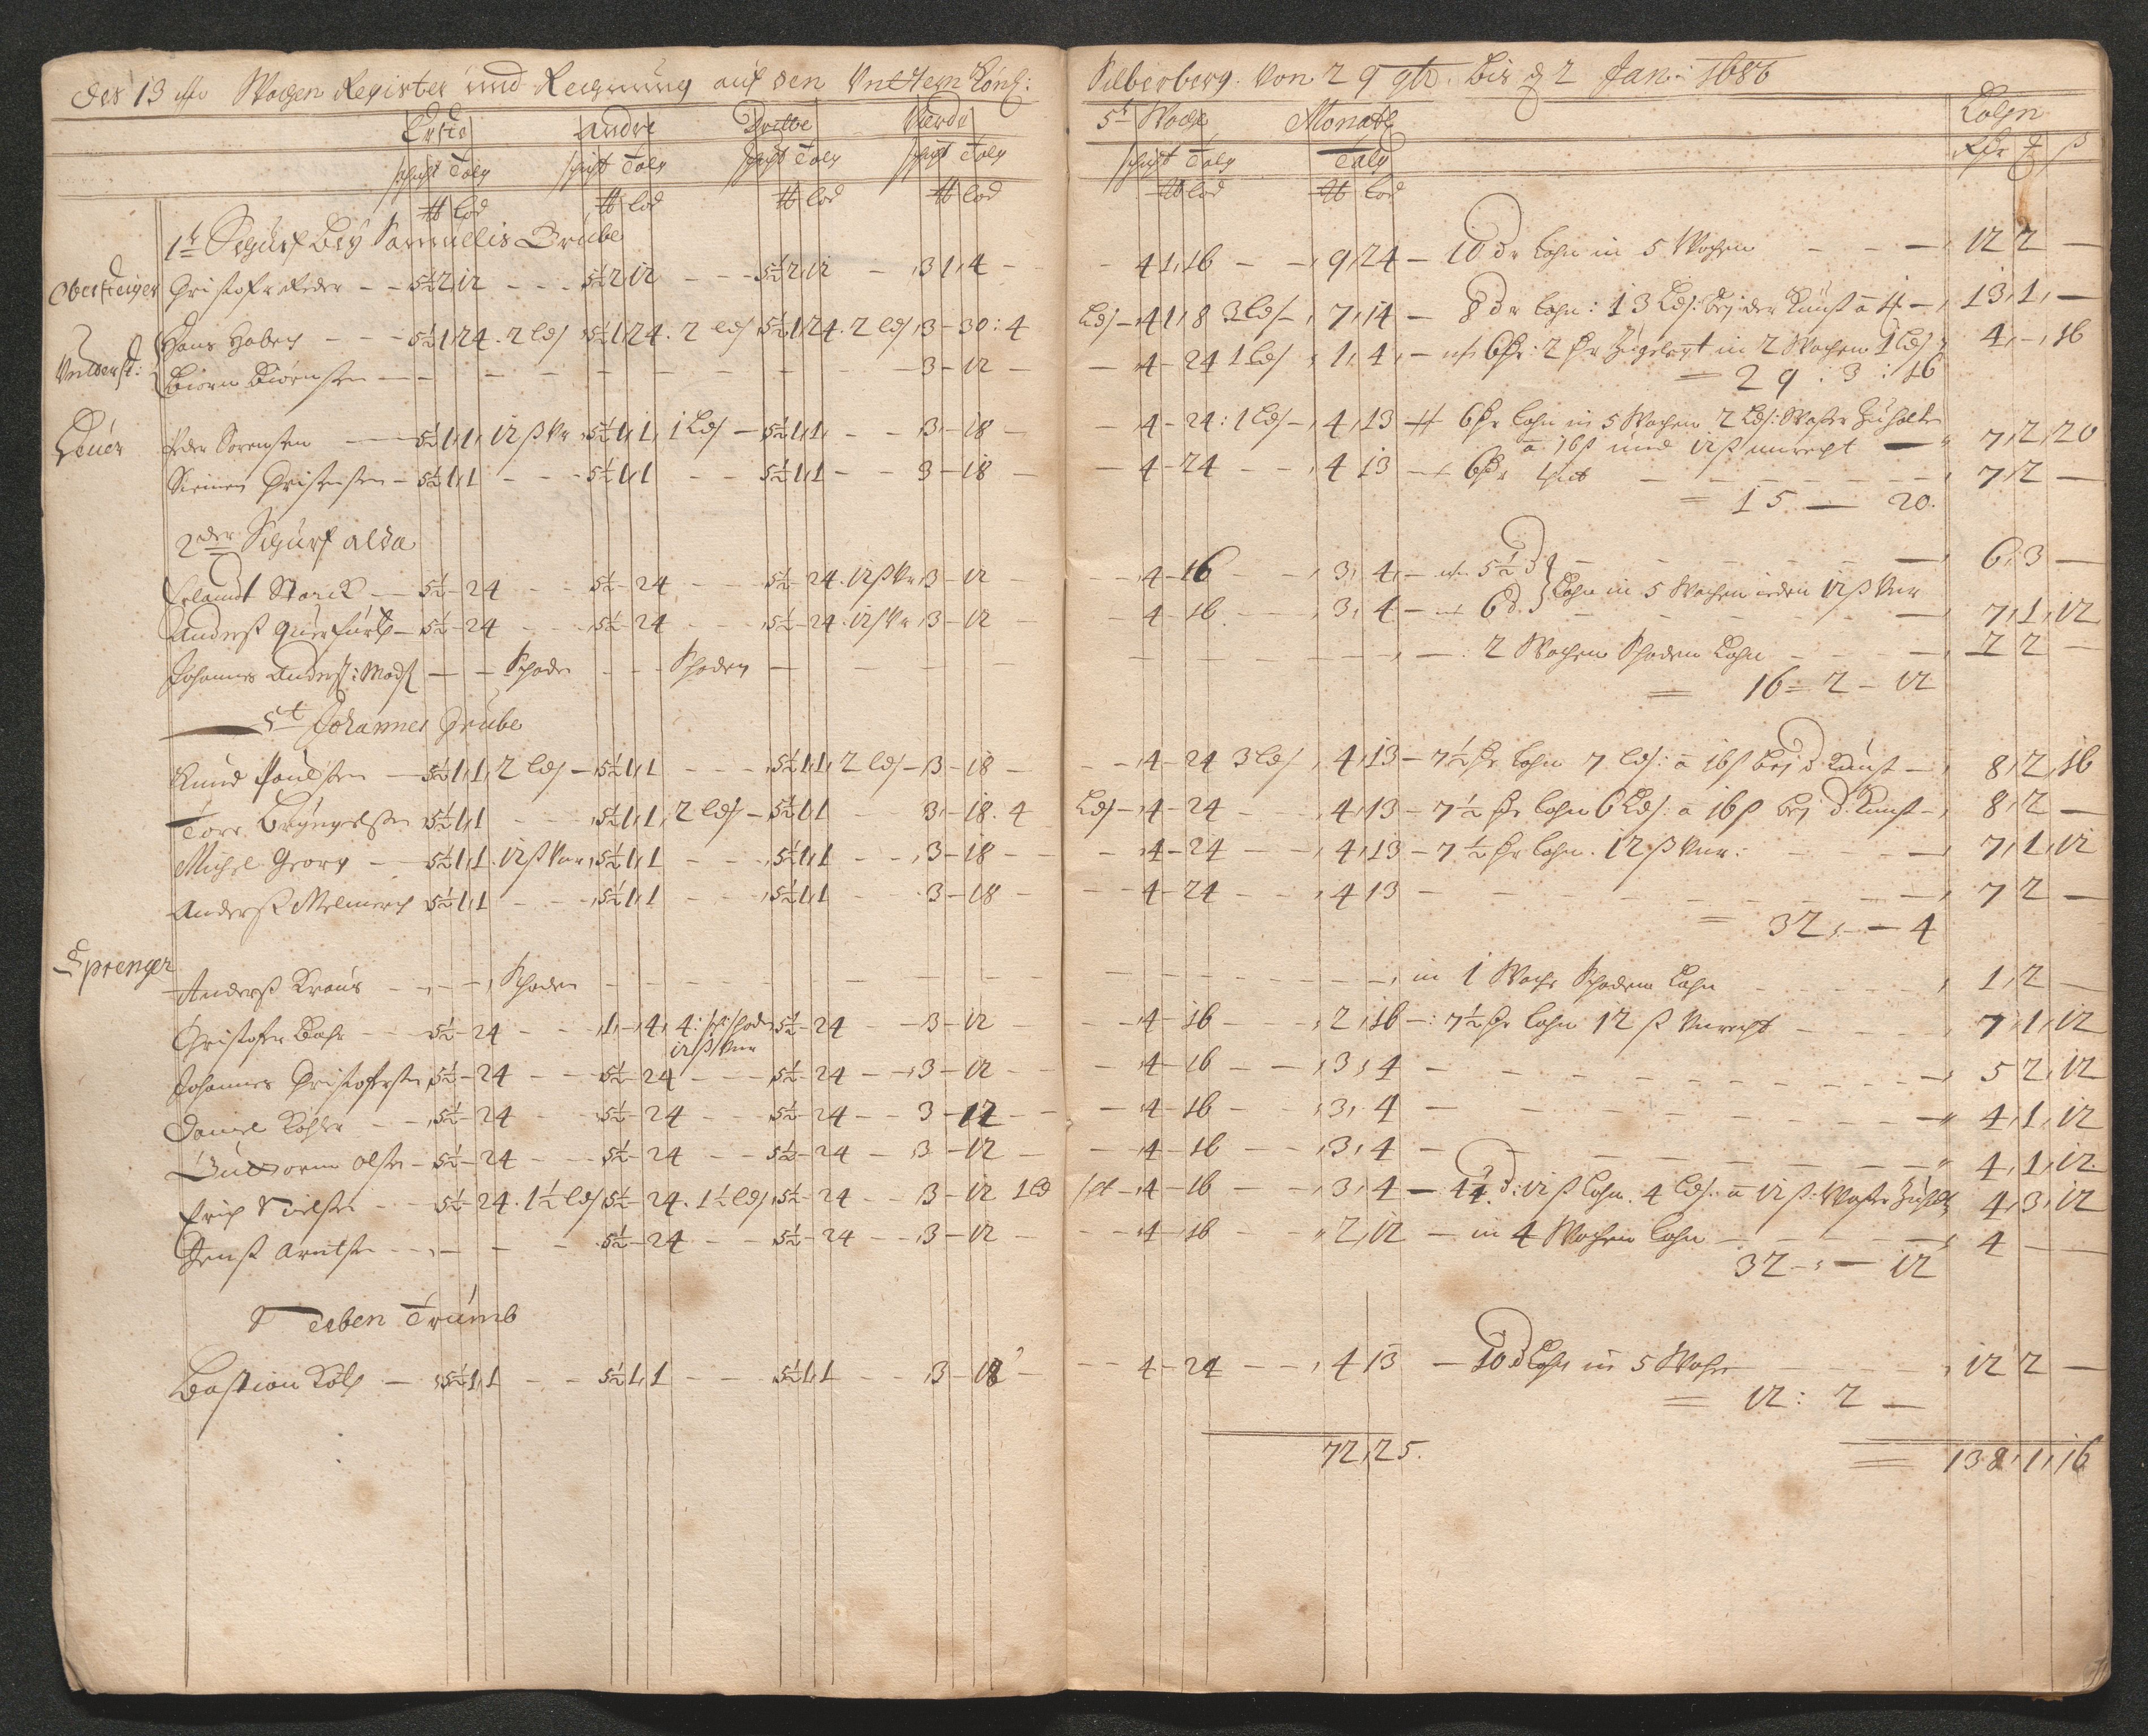 Des 13 ten Wochen Register und Rechnung auf den Unttern Köni: Silberberg. Von 29 9br. bis d 2 Jan: 1686
Erste Andre Dritte Vierde 5t Woche Monatl Lohn
schicht Talg schicht Talg schicht Talg schicht Talg schicht Talg Talg
℔ lod ℔ lod ℔ lod ℔ lod ℔ lod ℔ lod
1t Schurf bey Samuellis Grube
Obersteiger Christoffer — 5½ 2, 12 — 5½ 2 12 — 5½ 2, 12 — 3 1, 4 — 4 1, 16 — 9, 24 — 10 dr Lohn in 5 Wochen — 12 2 —
Unterst: Hans — 5½ 1, 24. 2 leds 5½ 1, 24. 2 leds 5½ 1, 24. 2 leds 3 — 30: 4 Leds — 4 1, 8 3 leds — 7, 14 — 8 dr Lohn: 13 Leds: bej der Kunst â — 13, 1, —
Biörn Biörnsen — 3 — 12 — 4 — 24 1 leds 1, 4, — in 2 Wochen 1 Leds 4, —, 16
= 29: 3: 16
Peder Sorensen — 5½ 1, 1, 12 ß 5½ 1, 1, 1 Leds — 5½ 1, 1, — 3 — 18 — 4 — 24: 1 Leds — 4, 13 6 Lohn in 5 Wochen 2 Leds: Waßer
â 16 ß und 12 ß unrecht — 7, 2, 20
Simen Christensen — 5½ 1, 1 — 5½ 1, 1 — 5½ 1, 1 — 3 — 18 — 4 — 24 — 4 13 — 6 — 7, 2 —
= 15 — 20.
2der Schurf alda
Erlandt Starck — 5½ — 24 — 5½ — 24 — 5½ — 24. 12 ß 3 — 12 — 4 — 16 — 3, 4, — 5½ d — 6, 3 —
Lohn in 5 Wochen jeden 12 ß Unr
Anderß Querfurth — 5½ — 24 — 5½ — 24 — 5½ — 24. 12 ß 3 — 12 — 4 — 16 — 3, 4 — 6 d. — 7, 1, 12
Johannes Anderß: Mads — Schaden — Schaden — 2 Wochen Schaden Lohn — 2 2 —
= 16 = 2 — 12
St Johannes Grube
Knud Paulsen — 5½ 1, 1, 2 leds — 5½ 1, 1 — 5½ 1, 1, 2 leds — 3 — 18 — 4 — 24 3 leds, 4, 13 — 7½ Lohn 7 leds: â 16 ß bej d Kunst — 8, 2, 16
Tore — 5½ 1, 1 — 5½ 1, 1, 2 leds — 5½ 1, 1 — 3, — 18. 4 Leds — 4 — 24 — 4, 13 — 7½ Lohn 6 Leds: â 16 ß bej d: Kunst — 8, 2 —
Michel Georg — 5½ 1, 1. 12 ß Unr 5½ 1, 1 — 5½ 1, 1 — 3 — 18 — 4 — 24 — 4, 13 — 7½ Lohn. 12 ß Unr: — 7, 1, 12
Anderß — 5½ 1, 1 — 5½ 1, 1 — 5½ 1, 1 — 3 — 18 — 4 — 24 — 4 13 — 7 2 —
= 32, — 4
Sprenger
Anderß Kraus — Schaden — in 1 Woche Schaden Lohn — 1, 2 —
Christofer Bahr — 5½ — 24 — 1, — 4, 4: sch: schaden 5½ — 24 — 3 — 12 — 4 — 16 — 2, 16 —: 7½ Lohn 12 ß Unrecht — 7, 1, 12
12 ß Unr
Johannes Christoffersen 5½ — 24 — 5½ — 24 — 5½ — 24 — 3 — 12 — 4 — 16 — 3, 4 — 5 2, 12
Daniel Köhler — 5½ — 24 — 5½ — 24 — 5½ — 24 — 3 — 12 — 4 — 16 — 3, 4 — 4, 1, 12
Guttorm Olsen — 5½ — 24 — 5½ — 24 — 5½ — 24 — 3 — 12 — 4 — 16 — 3, 4 — 4, 1, 12.
Erich Nielsen — 5½ — 24. 1½ leds 5½ — 24. 1½ leds 5½ — 24 — 3 — 12 1 led — 4 — 16 — 3, 4 — 12 ß Lohn. 4 leds: â 12 ß: Waßer 4, 3, 12
Jenß Arntsen — 5½ — 24 — 5½ — 24 — 3 — 12 — 4 — 16 — 2, 12 — in 4 Wochen Lohn — 4 — —
32 — — 12
Neben Trumb
Bastian Kolb — 5½ 1, 1 — 5½ 1, 1 — 5½ 1, 1 — 3 — 18 — 4 — 24 — 4 13 — 10 d Lohn in 5 Wochen — 12 2 —
= 12: 2 —
72, 25. = 138, 1, 16